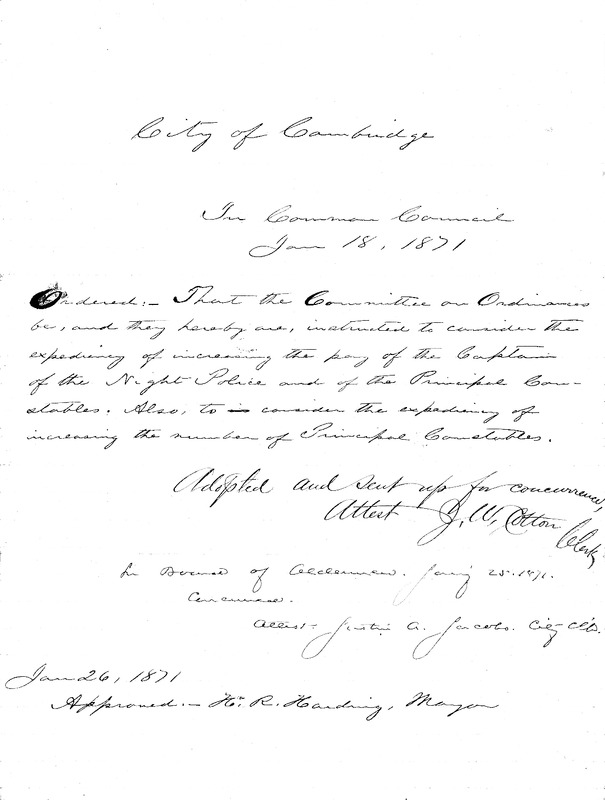 City of Cambridge
In Common Council
Jan 18, 1871
Ordered:- That the Committee on Ordinances
be, and they hereby are, instructed to consider the
expediency of increasing the pay of the Captain
of the Night Police and of the Principal Con-
stables. Also, to consider the expediency of
increasing the number of Principal Constables.
Adopted and sent up for concurrence,
Attest J. W. Cotton Clerk
In Board of Aldermen. Jany 25. 1871.
Concurred.
Attest Justin A. Jacobs. City Clk.
Jan 26, 1871
Approved.- H. R. Harding, Mayor